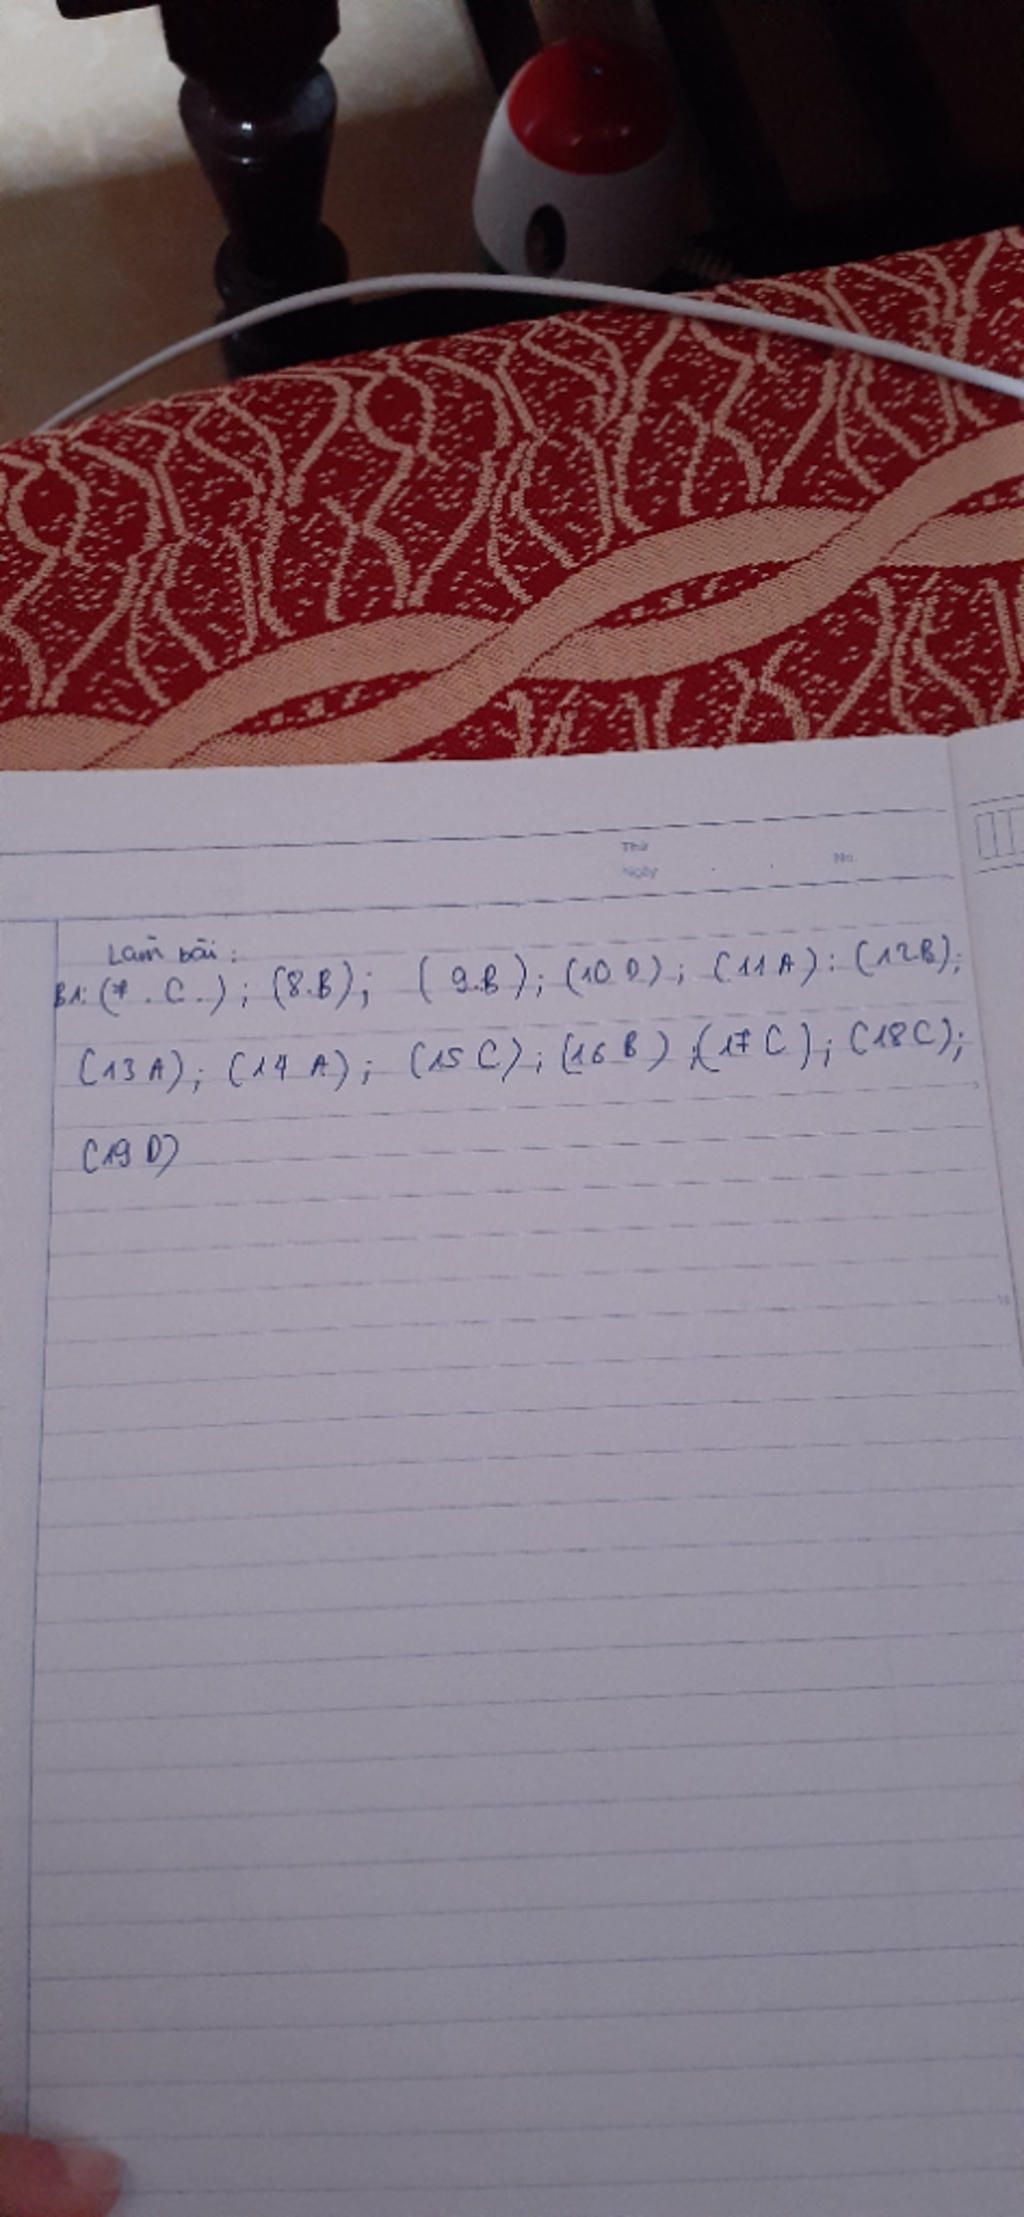 Thứ
Ngày No.
Làm bài :
B1: (7 . C .) ; (8.B) ; ( 9.B ) ; (10 D) ; (11 A) : (12B) ;
(13 A) ; (14 A) ; (15 C) ; (16 B) ; (17 C ) ; (18C) ;
(19 D)
10